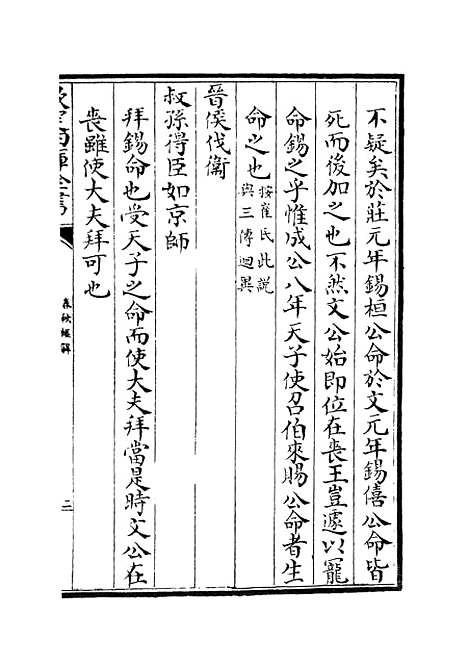 不疑矣於莊元年錫桓公命於文元年錫僖公命皆
死而後加之也不然文公始即位在喪王豈遽以寵
命錫之乎惟成公八年天子使召伯來賜公命者生
命之也按崔氏此說與三傳迥異
晉侯伐衛
叔孫得臣如京師
拜錫命也受天子之命而使大夫拜當是時文公在
喪雖使大夫拜可也
欽定四庫全書
春秋經解
三